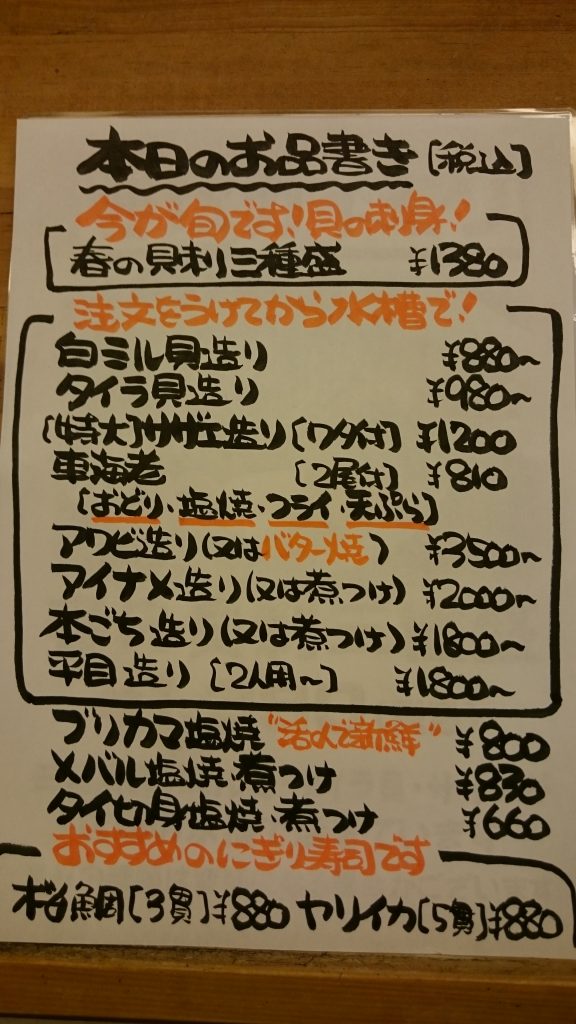 本日のお品書き [税込]
今が旬です!貝の刺身!
春の貝刺り三種盛 ¥1380
注文をうけてから水槽で!
白ミル貝造り ¥880〜
タイラ貝造り ¥980〜
[特大]サザエ造り[ワタ付] ¥1200
車海老 [2尾付] ¥810
[おどり・塩焼・フライ・天ぷら]
アワビ造り(又はバター焼) ¥3500〜
アイナメ造り(又は煮つけ) ¥2000〜
本ごち造り(又は煮つけ) ¥1800〜
平目造り [2人用〜] ¥1800〜
ブリカマ塩焼 "活〆で新鮮" ¥800
メバル塩焼・煮つけ ¥830
タイ切身塩焼・煮つけ ¥660
おすすめのにぎり寿司です
桜鯛[3貫]¥880 ヤリイカ[5貫]¥880